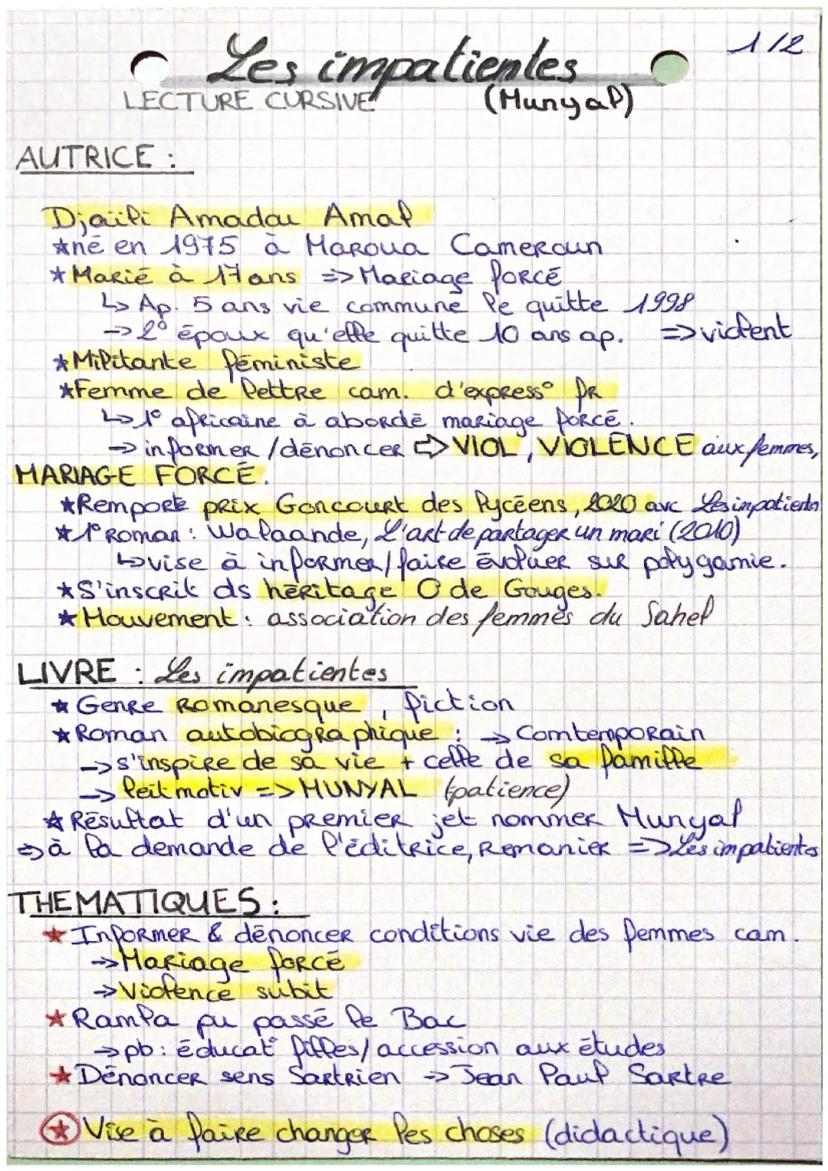 Les impatientes
1/2
LECTURE CURSIVE (Munyal)
AUTRICE :
Djaïli Amadou Amal
*né en 1975 à Maroua Cameroun
*Marié à 17 ans => Mariage forcé
↳ Ap. 5 ans vie commune le quitte 1998
→ 2° époux qu'elle quitte 10 ans ap. => violent
*Militante féministe
*Femme de lettre cam. d'express° fr
↳ 1e africaine à abordé mariage forcé.
→ informer/dénoncer ⇨ VIOL, VIOLENCE aux femmes,
MARIAGE FORCÉ.
*Remporte prix Goncourt des lycéens, 2020 avc Les impatients
*1e Roman : Walaande, L'art de partager un mari (2010)
↳ vise à informer/faire évoluer sur polygamie.
*S'inscrit ds héritage O de Gouges.
*Mouvement : association des femmes du Sahel
LIVRE : Les impatientes
*Genre romanesque, fiction
*Roman autobiographique : → Comtemporain
→ s'inspire de sa vie + celle de sa famille
→ leitmotiv => MUNYAL (patience)
*Résultat d'un premier jet nommer Munyal
=> à la demande de l'éditrice, remanier => Les impatientes
THEMATIQUES :
*Informer & dénoncer conditions vie des femmes cam.
→ Mariage forcé
→ Violence subit
*Ramla pu passé le Bac
→ pb : éducat° filles/accession aux études
*Dénoncer sens Sartrien → Jean Paul Sartre
*Vise à faire changer les choses (didactique)